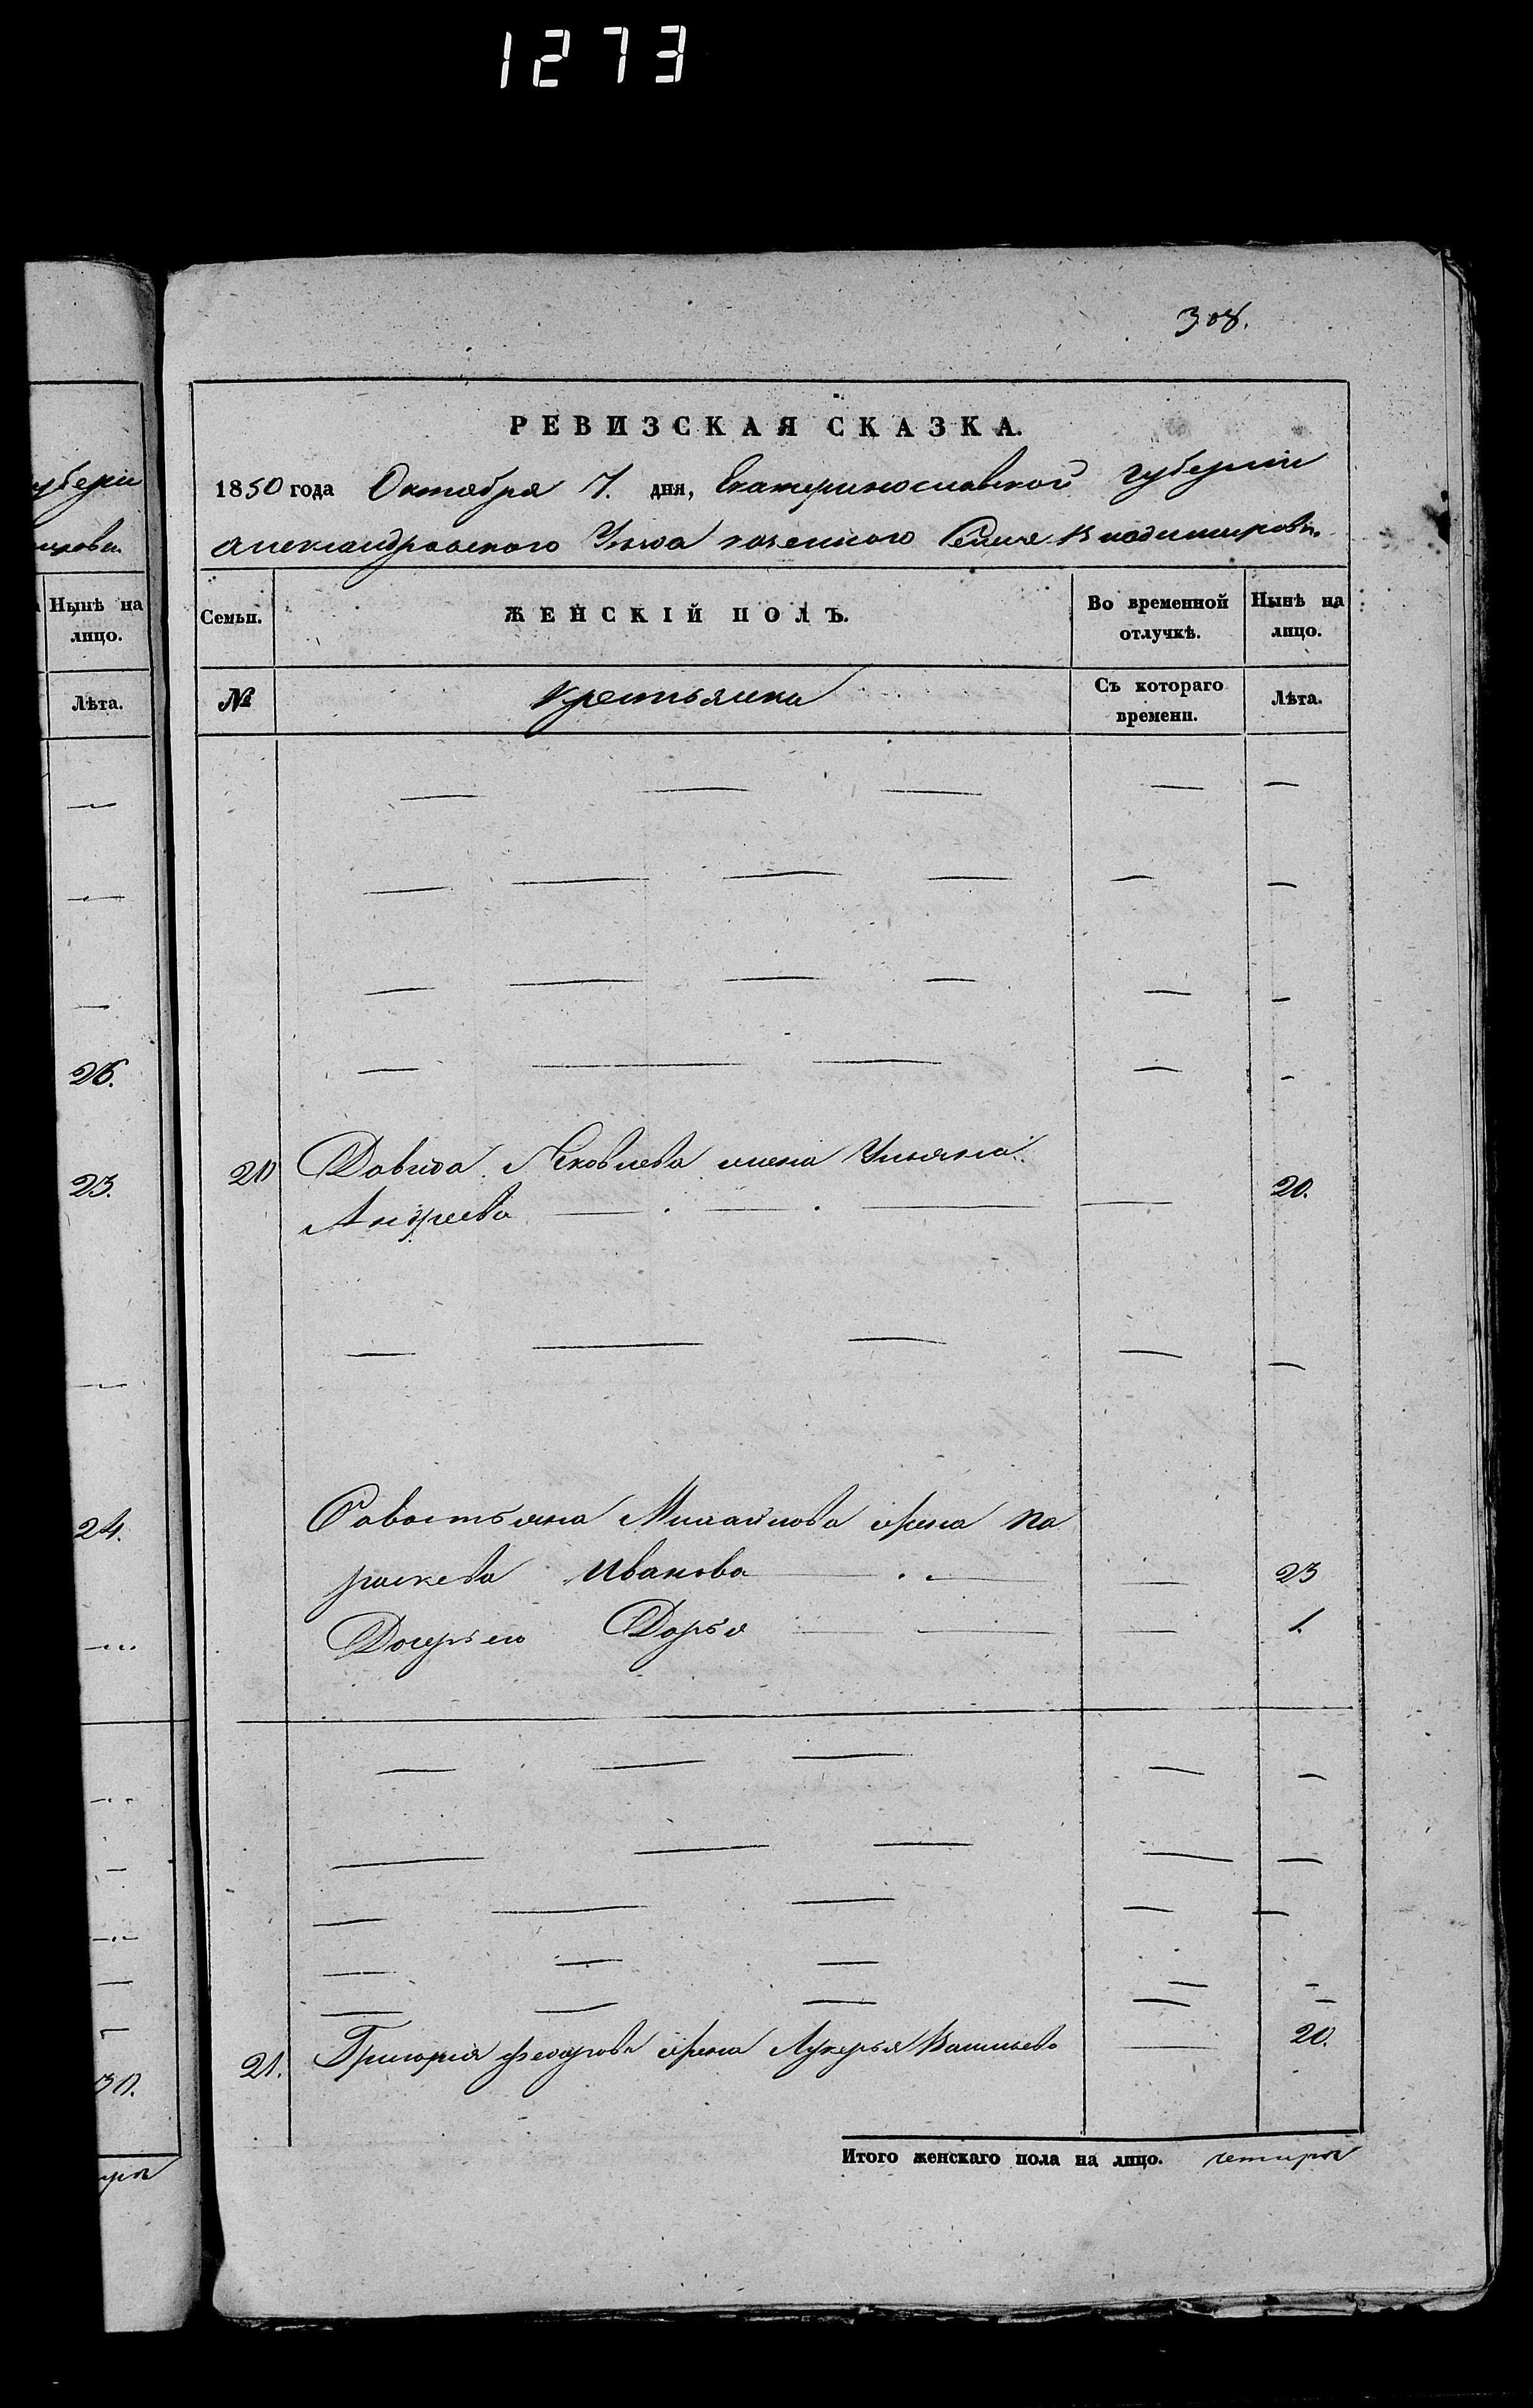 1273
308.
губерніи
ировки
Нынѣ на
лицо.
Лѣта.
26.
23.
24.
30.
РЕВИЗСКАЯ СКАЗКА.
1850 года Октября 7. дня, Екатеринославской губерніи
Александровского Уезда казенного Селенія Владимировки
Семьи.
ЖЕНСКІЙ ПОЛЪ.
Во временной
отлучкѣ.
Нынѣ на
лицо.
№
Крестьянки
Съ котораго
времени.
Лѣта.
20 Давида Яковлева жена Ульяна
Андреева 20.
Савостьяна Михайлова жена Па
раскева Иванова 23
Дочерь его Дарья 1.
21. Григорія Федорова жена Лукерья Васильева 20.
Итого женскаго пола на лицо. четыре